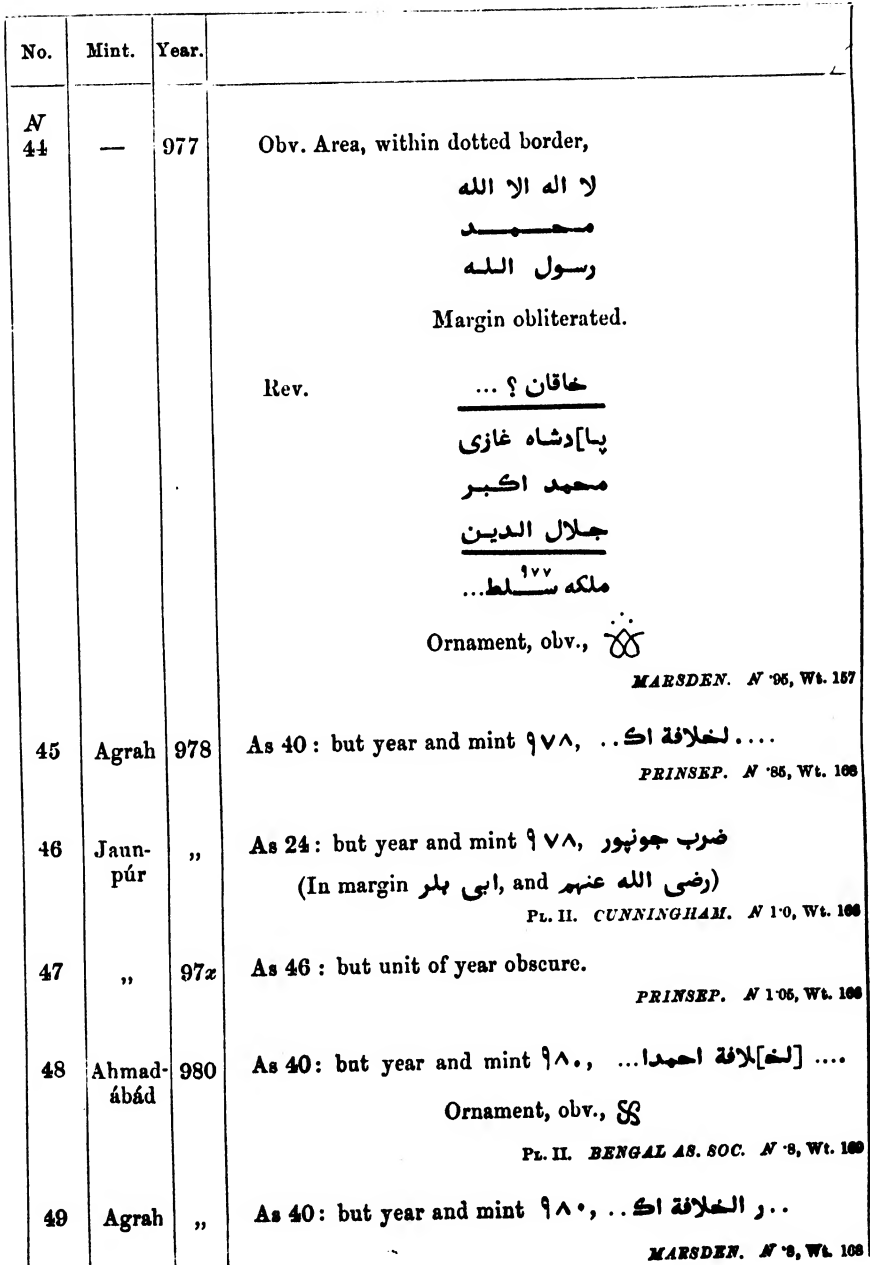 No. Mint. Year.
N
44 — 977 Obv. Area, within dotted border,
لا اله الا الله
محمد
رسول الله
Margin obliterated.
Rev. خاقان ؟ ...
پا]دشاه غازى
محمد اكبر
جلال الدين
٩٧٧
ملكه سلط...
Ornament, obv.,
MARSDEN. N ·95, Wt. 157
45 Agrah 978 As 40: but year and mint ٩٧٨, ....لخلافة اك..
PRINSEP. N ·85, Wt. 168
46 Jaun- „ As 24: but year and mint ٩٧٨, ضرب جونپور
púr (In margin ابى بلر, and رضى الله عنهم)
PL. II. CUNNINGHAM. N 1·0, Wt. 166
47 „ 97x As 46: but unit of year obscure.
PRINSEP. N 1·05, Wt. 166
48 Ahmad- 980 As 40: but year and mint ٩٨٠, .... [لخ]لافة احمدا...
ábád Ornament, obv.,
PL. II. BENGAL AS. SOC. N ·8, Wt. 169
49 Agrah „ As 40: but year and mint ٩٨٠, ..ر الخلافة اك..
MARSDEN. N ·8, Wt. 168